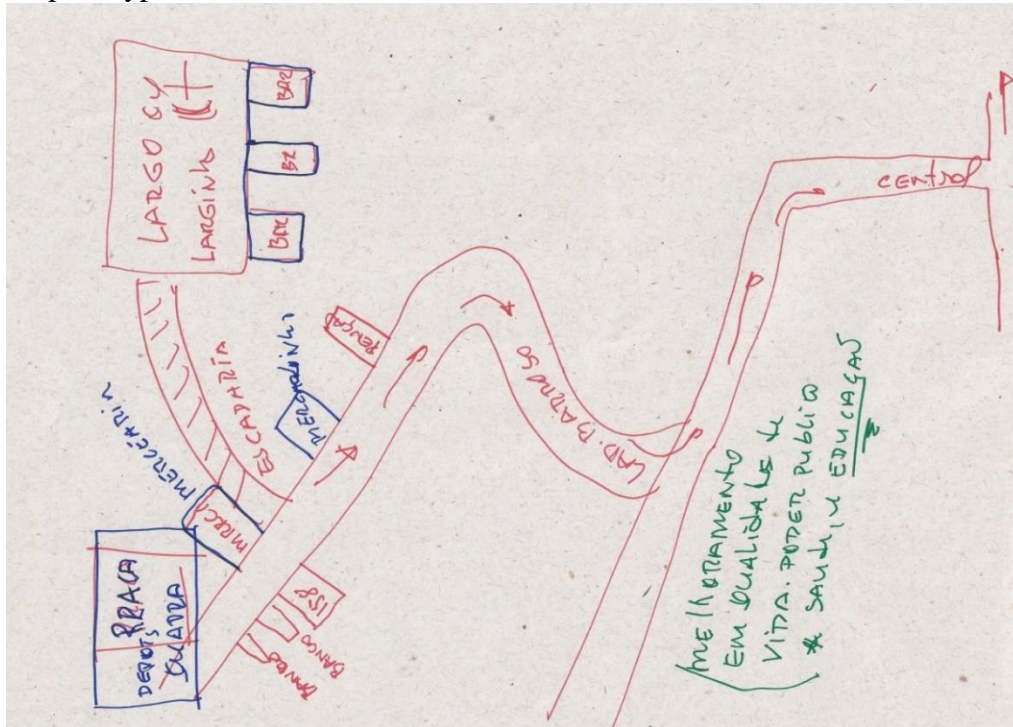 LARGO GY
LARGINHO
BAR
BZ
BAR
ESCADARIA
MERCEARIA
MERC
MERCADINHO
PENÇÃO
PRAÇA
DEPOIS
QUADRA
158
BANCO
BANCO
LAD. BARROSO
CENTRAL
MElhORAMENTO
EM QUALIDADE DE
VIDA. PODER PUBLICO
* SAUDE EDUCAÇÃO